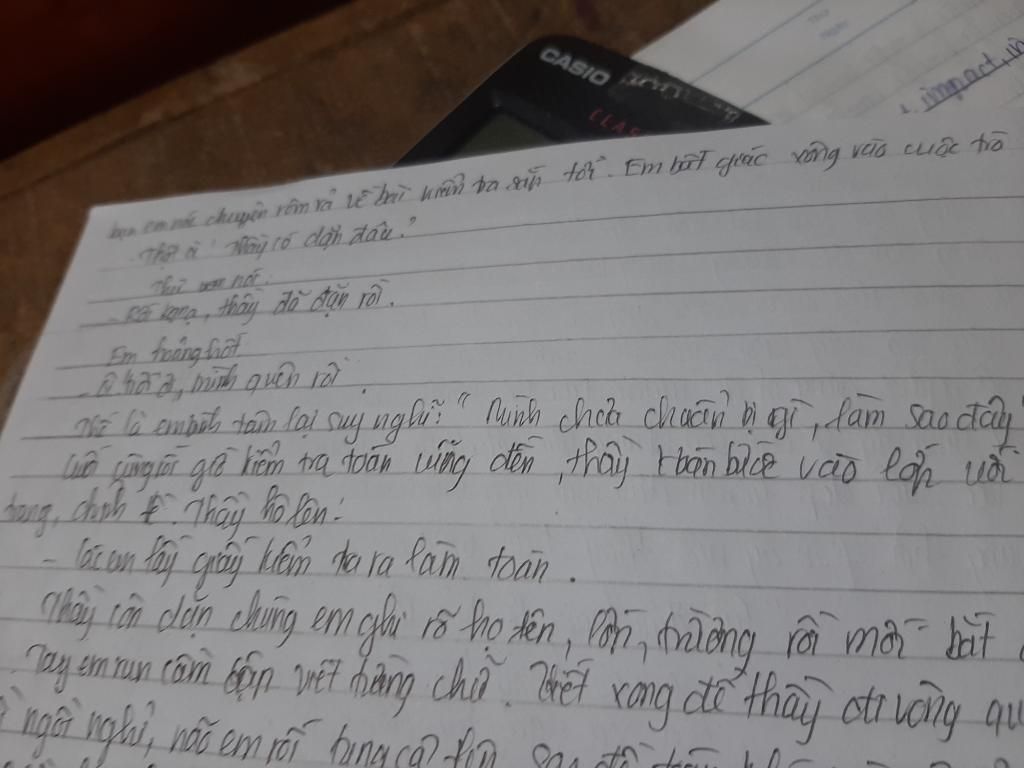 CASIO
CLAS
impact, in
bạn em nói chuyện rôm rả về bài kiểm tra sắp tới. Em bất giác xông vào cuộc trò
Thật à! Thầy có dặn đâu.
nói:
thầy đã dặn rồi.
Em hoảng hốt
mình quên rồi.
Thế là em bình tâm lại suy nghĩ: "Mình chưa chuẩn bị gì, làm sao đây
giờ kiểm tra toán cũng đến, thầy bước vào lớp với
trang, chỉnh tề. Thầy hô lên:
- Các em lấy giấy kiểm tra ra làm toán.
Thầy còn dặn chúng em ghi rõ họ tên, lớp, trường rồi mới bắt
Tay em run cầm cập viết hàng chữ. Viết xong đề thầy đi vòng qu
ngồi nghỉ, não em rối tung cả lên. Sao đề toán